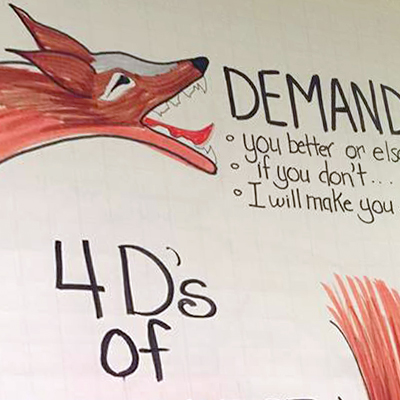 DEMAND
° you better or else
° if you don't...
° I will make you
4 D's
of